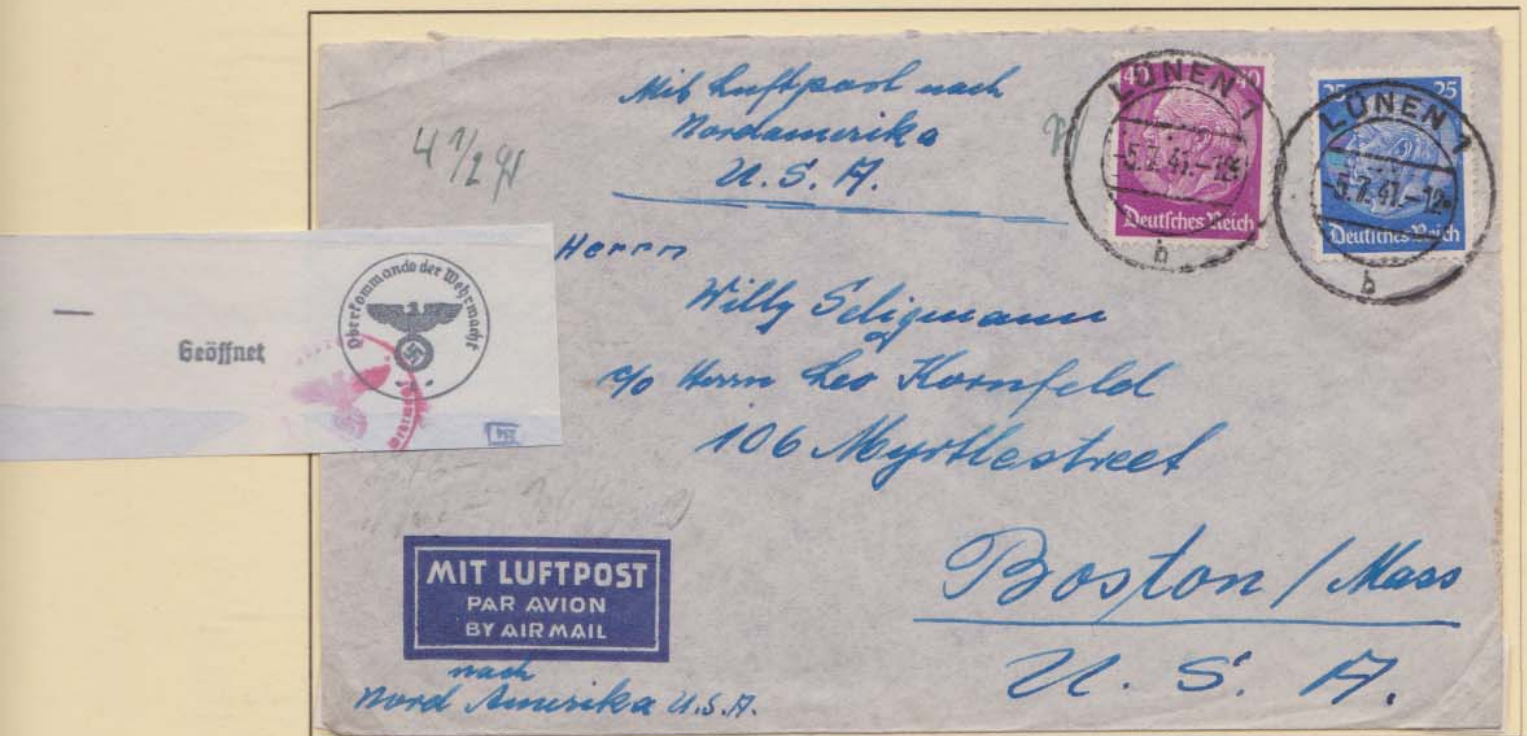 Mit Luftpost nach
Nordamerika
U. S. A.
4 1/2
40 40
Deutsches Reich
LÜNEN 1
-5.7.41.-12
b
25 25
Deutsches Reich
LÜNEN 1
-5.7.41.-12
b
Geöffnet
Oberkommando der Wehrmacht
Herrn
Willy Seligmann
c/o Herrn Leo Kornfeld
106 Myrtlestreet
Boston / Mass
U. S. A.
MIT LUFTPOST
PAR AVION
BY AIR MAIL
nach
Nord Amerika U.S.A.